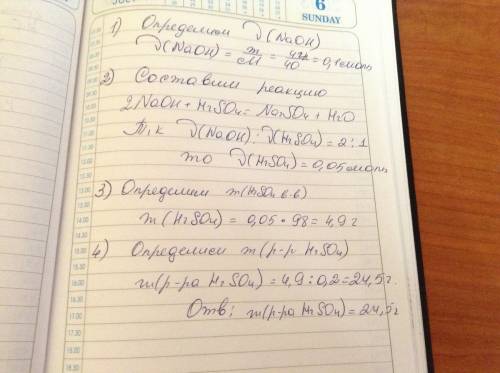 6
SUNDAY
1) Определим ν(NaOH)
ν(NaOH) = m/M = 4г/40 = 0,1 моль
2) Составим реакцию
2NaOH + H2SO4 = Na2SO4 + H2O
Т.к ν(NaOH) : ν(H2SO4) = 2 : 1
то ν(H2SO4) = 0,05 моль
3) Определим m(H2SO4 в-в)
m(H2SO4) = 0,05 • 98 = 4,9 г
4) Определим m(р-р H2SO4)
m(р-ра H2SO4) = 4,9 : 0,2 = 24,5 г.
Отв: m(р-ра H2SO4) = 24,5 г